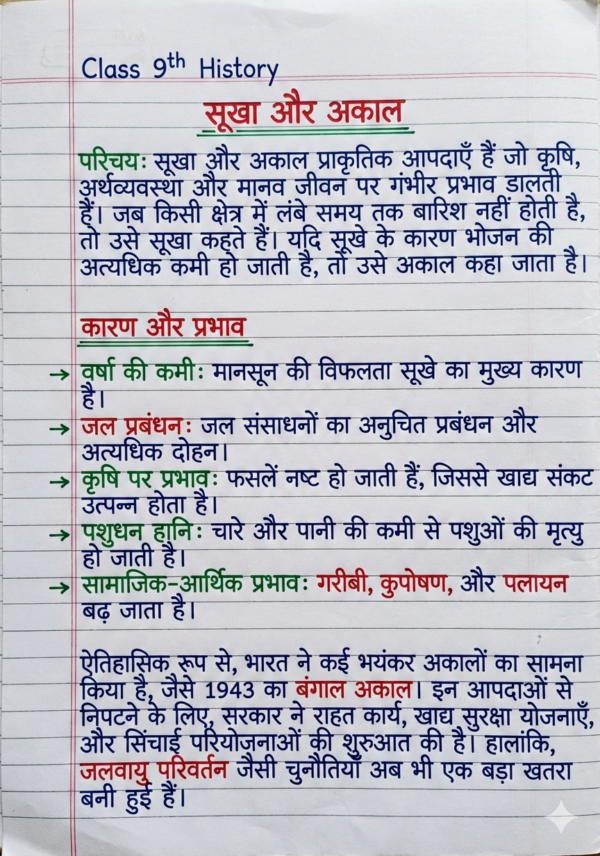 Class 9th History
सूखा और अकाल
परिचय: सूखा और अकाल प्राकृतिक आपदाएँ हैं जो कृषि,
अर्थव्यवस्था और मानव जीवन पर गंभीर प्रभाव डालती
हैं। जब किसी क्षेत्र में लंबे समय तक बारिश नहीं होती है,
तो उसे सूखा कहते हैं। यदि सूखे के कारण भोजन की
अत्यधिक कमी हो जाती है, तो उसे अकाल कहा जाता है।
कारण और प्रभाव
→ वर्षा की कमी: मानसून की विफलता सूखे का मुख्य कारण
है।
→ जल प्रबंधन: जल संसाधनों का अनुचित प्रबंधन और
अत्यधिक दोहन।
→ कृषि पर प्रभाव: फसलें नष्ट हो जाती हैं, जिससे खाद्य संकट
उत्पन्न होता है।
→ पशुधन हानि: चारे और पानी की कमी से पशुओं की मृत्यु
हो जाती है।
→ सामाजिक-आर्थिक प्रभाव: गरीबी, कुपोषण, और पलायन
बढ़ जाता है।
ऐतिहासिक रूप से, भारत ने कई भयंकर अकालों का सामना
किया है, जैसे 1943 का बंगाल अकाल। इन आपदाओं से
निपटने के लिए, सरकार ने राहत कार्य, खाद्य सुरक्षा योजनाएँ,
और सिंचाई परियोजनाओं की शुरुआत की है। हालांकि,
जलवायु परिवर्तन जैसी चुनौतियाँ अब भी एक बड़ा खतरा
बनी हुई हैं।